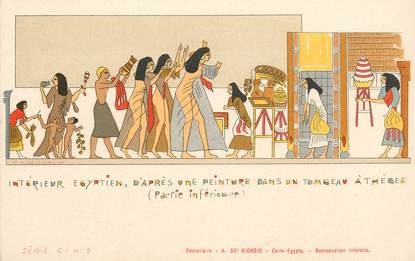 INTÉRIEUR EGYPTIEN, D'APRÈS UNE PEINTURE DANS UN TOMBEAU À THÈBES
(Partie inférieure)
SÉRIE C. N° 3
Dépositaire - A. DEL GIORGIO - Caire-Egypte. - Reproduction interdite.